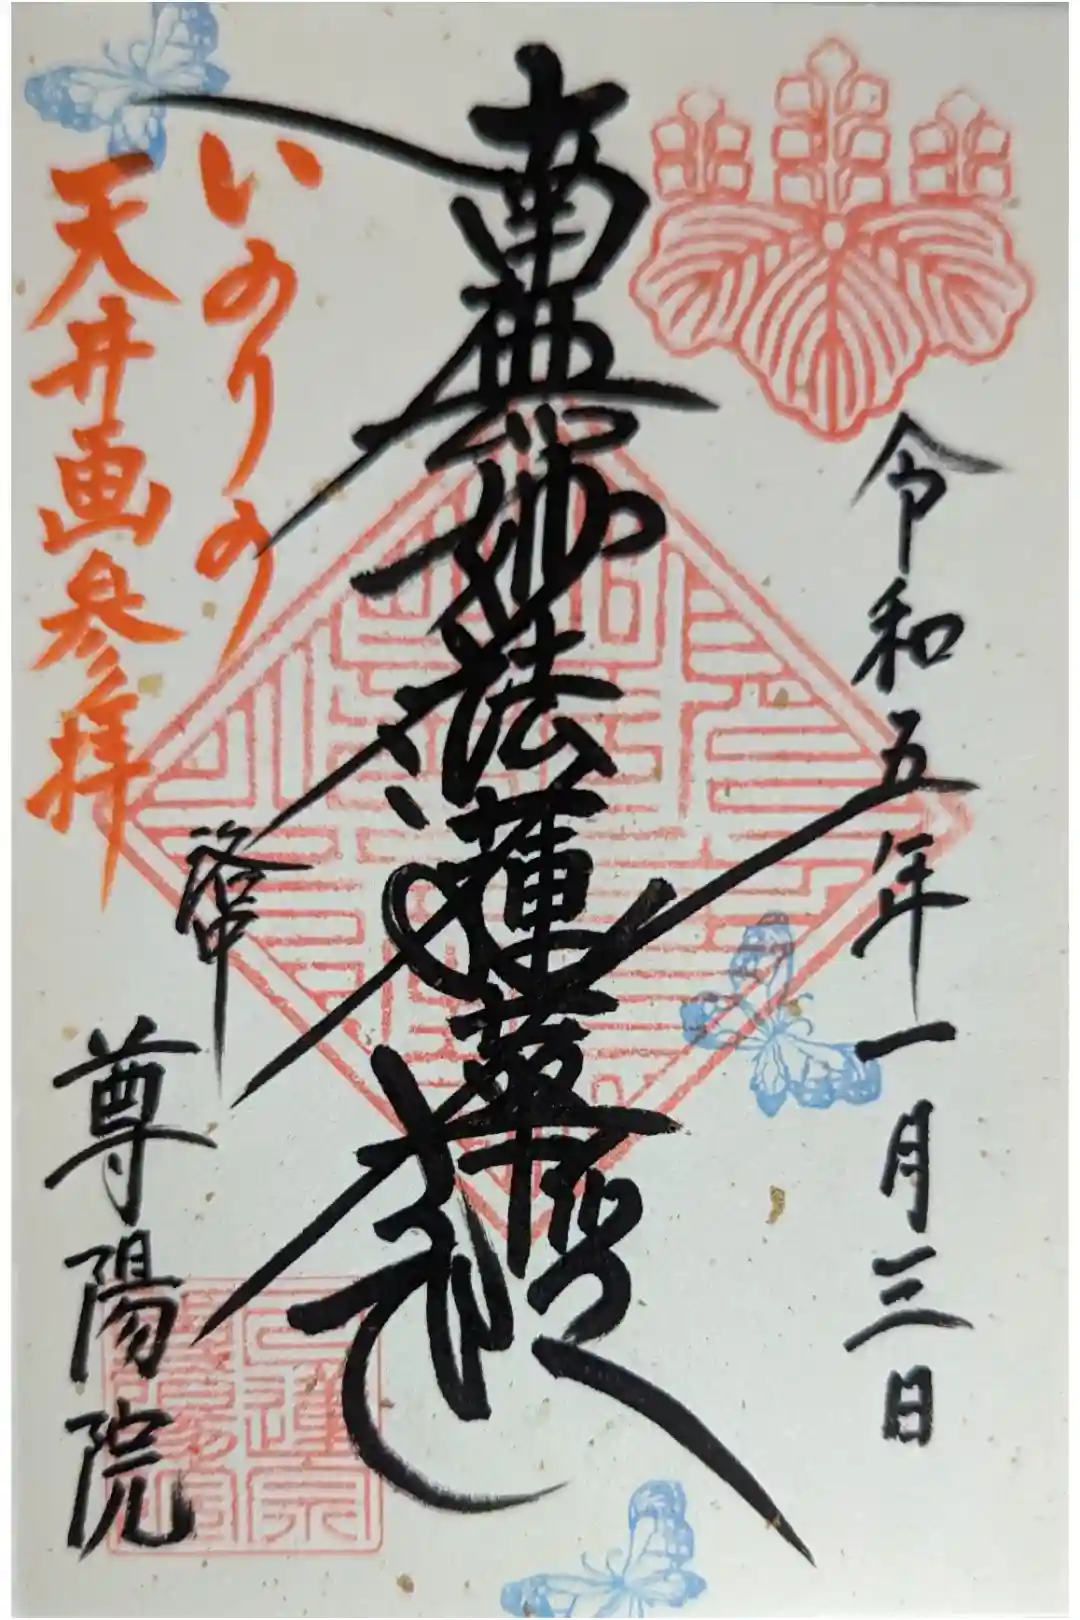 令和五年一月三日
南無妙法蓮華経
いのりの
天井画参拝
洛中
尊陽院